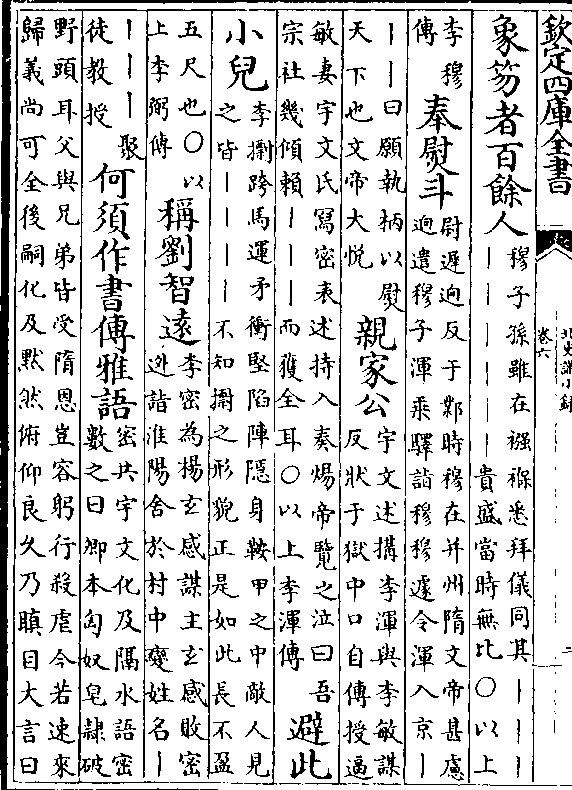 欽定四庫全書
北史識小錄
卷六
二
象笏者百餘人
穆子孫雖在襁褓悉拜儀同其｜｜｜
｜｜｜｜｜貴盛當時無比〇以上
李穆
傳
奉熨斗
尉遲迥反于鄴時穆在并州隋文帝甚慮
迥遣穆子渾乘驛詣穆穆遽令渾入京｜
｜｜曰願執柄以熨
天下也文帝大悅
親家公
宇文述搆李渾與李敏謀
反狀于獄中口自傳授逼
敏妻宇文氏寫密表述持入奏煬帝覽之泣曰吾
宗社幾傾賴｜｜｜而獲全耳〇以上李渾傳
避此
小兒
李跨馬運矛衝堅陷陣隱身鞍甲之中敵人見
之皆｜｜｜｜不知之形貌正是如此長不盈
五尺也〇以
上李弼傳
稱劉智遠
李密為楊玄感謀主玄感敗密
迯詣淮陽舍於村中變姓名｜
｜｜｜聚
徒教授
何須作書傳雅語
密共宇文化及隔水語密
數之曰卿本匈奴皂隸破
野頭耳父與兄弟皆受隋恩豈容躬行殺虐今若速來
歸義尚可全後嗣化及默然俯仰良久乃瞋目大言曰